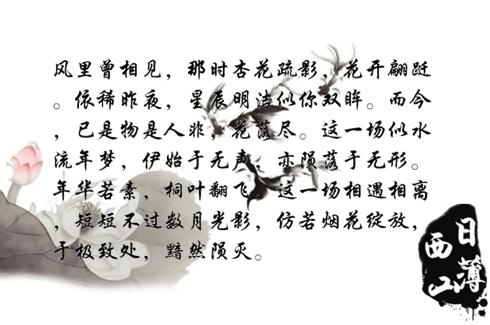 风里曾相见，那时杏花疏影，花开翩跹
。依稀昨夜，星辰明洁似你双眸。而今
，已是物是人非，花落尽。这一场似水
流年梦，伊始于无声，亦陨落于无形。
年华若素，桐叶翻飞。这一场相遇相离
，短短不过数月光影，仿若烟花绽放，
于极致处，黯然陨灭。
日薄
西山